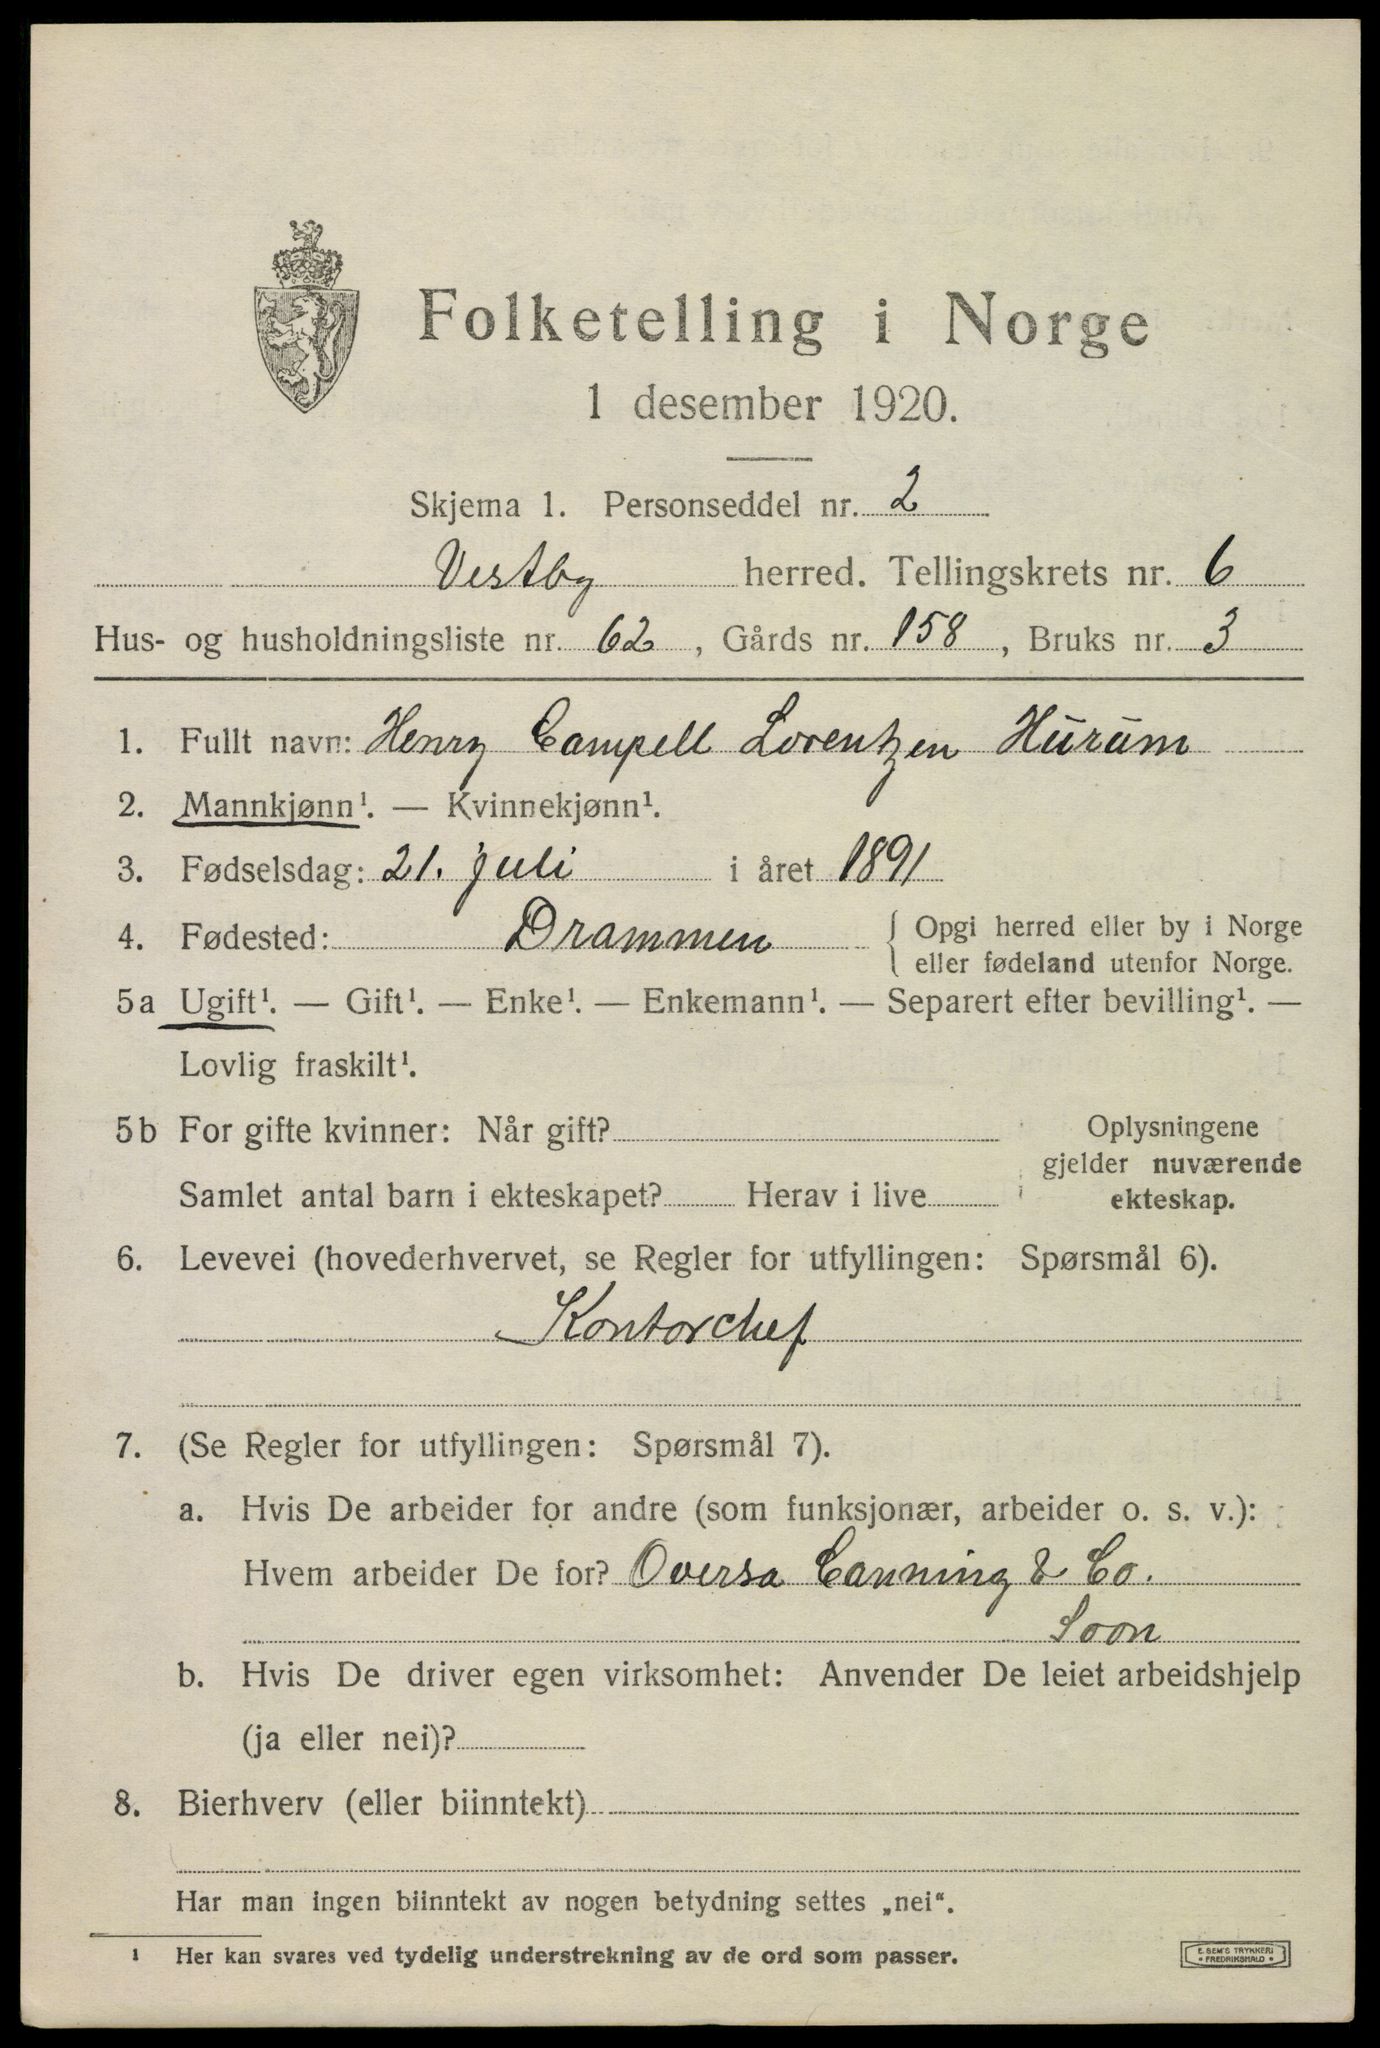 Folketelling i Norge
1 desember 1920.
Skjema 1. Personseddel nr. 2
Vestby herred. Tellingskrets nr. 6
Hus- og husholdningsliste nr. 62, Gårds nr. 158, Bruks nr. 3
1. Fullt navn: Henry Campell Lorentzen Hurum
2. Mannkjønn¹. — Kvinnekjønn¹.
3. Fødselsdag: 21. juli i året 1891
4. Fødested: Drammen { Opgi herred eller by i Norge
eller fødeland utenfor Norge.
5a Ugift¹. — Gift¹. — Enke¹. — Enkemann¹. — Separert efter bevilling¹. —
Lovlig fraskilt¹.
5b For gifte kvinner: Når gift?
Samlet antal barn i ekteskapet? Herav i live
Oplysningene
gjelder nuværende
ekteskap.
6. Levevei (hovederhvervet, se Regler for utfyllingen: Spørsmål 6).
Kontorchef
7. (Se Regler for utfyllingen: Spørsmål 7).
a. Hvis De arbeider for andre (som funksjonær, arbeider o. s. v.):
Hvem arbeider De for? Oversa Canning & Co.
Soon
b. Hvis De driver egen virksomhet: Anvender De leiet arbeidshjelp
(ja eller nei)?
8. Bierhverv (eller biinntekt)
Har man ingen biinntekt av nogen betydning settes „nei“.
¹ Her kan svares ved tydelig understrekning av de ord som passer.
E. SEM'S TRYKKERI
• FREDRIKSHALD •